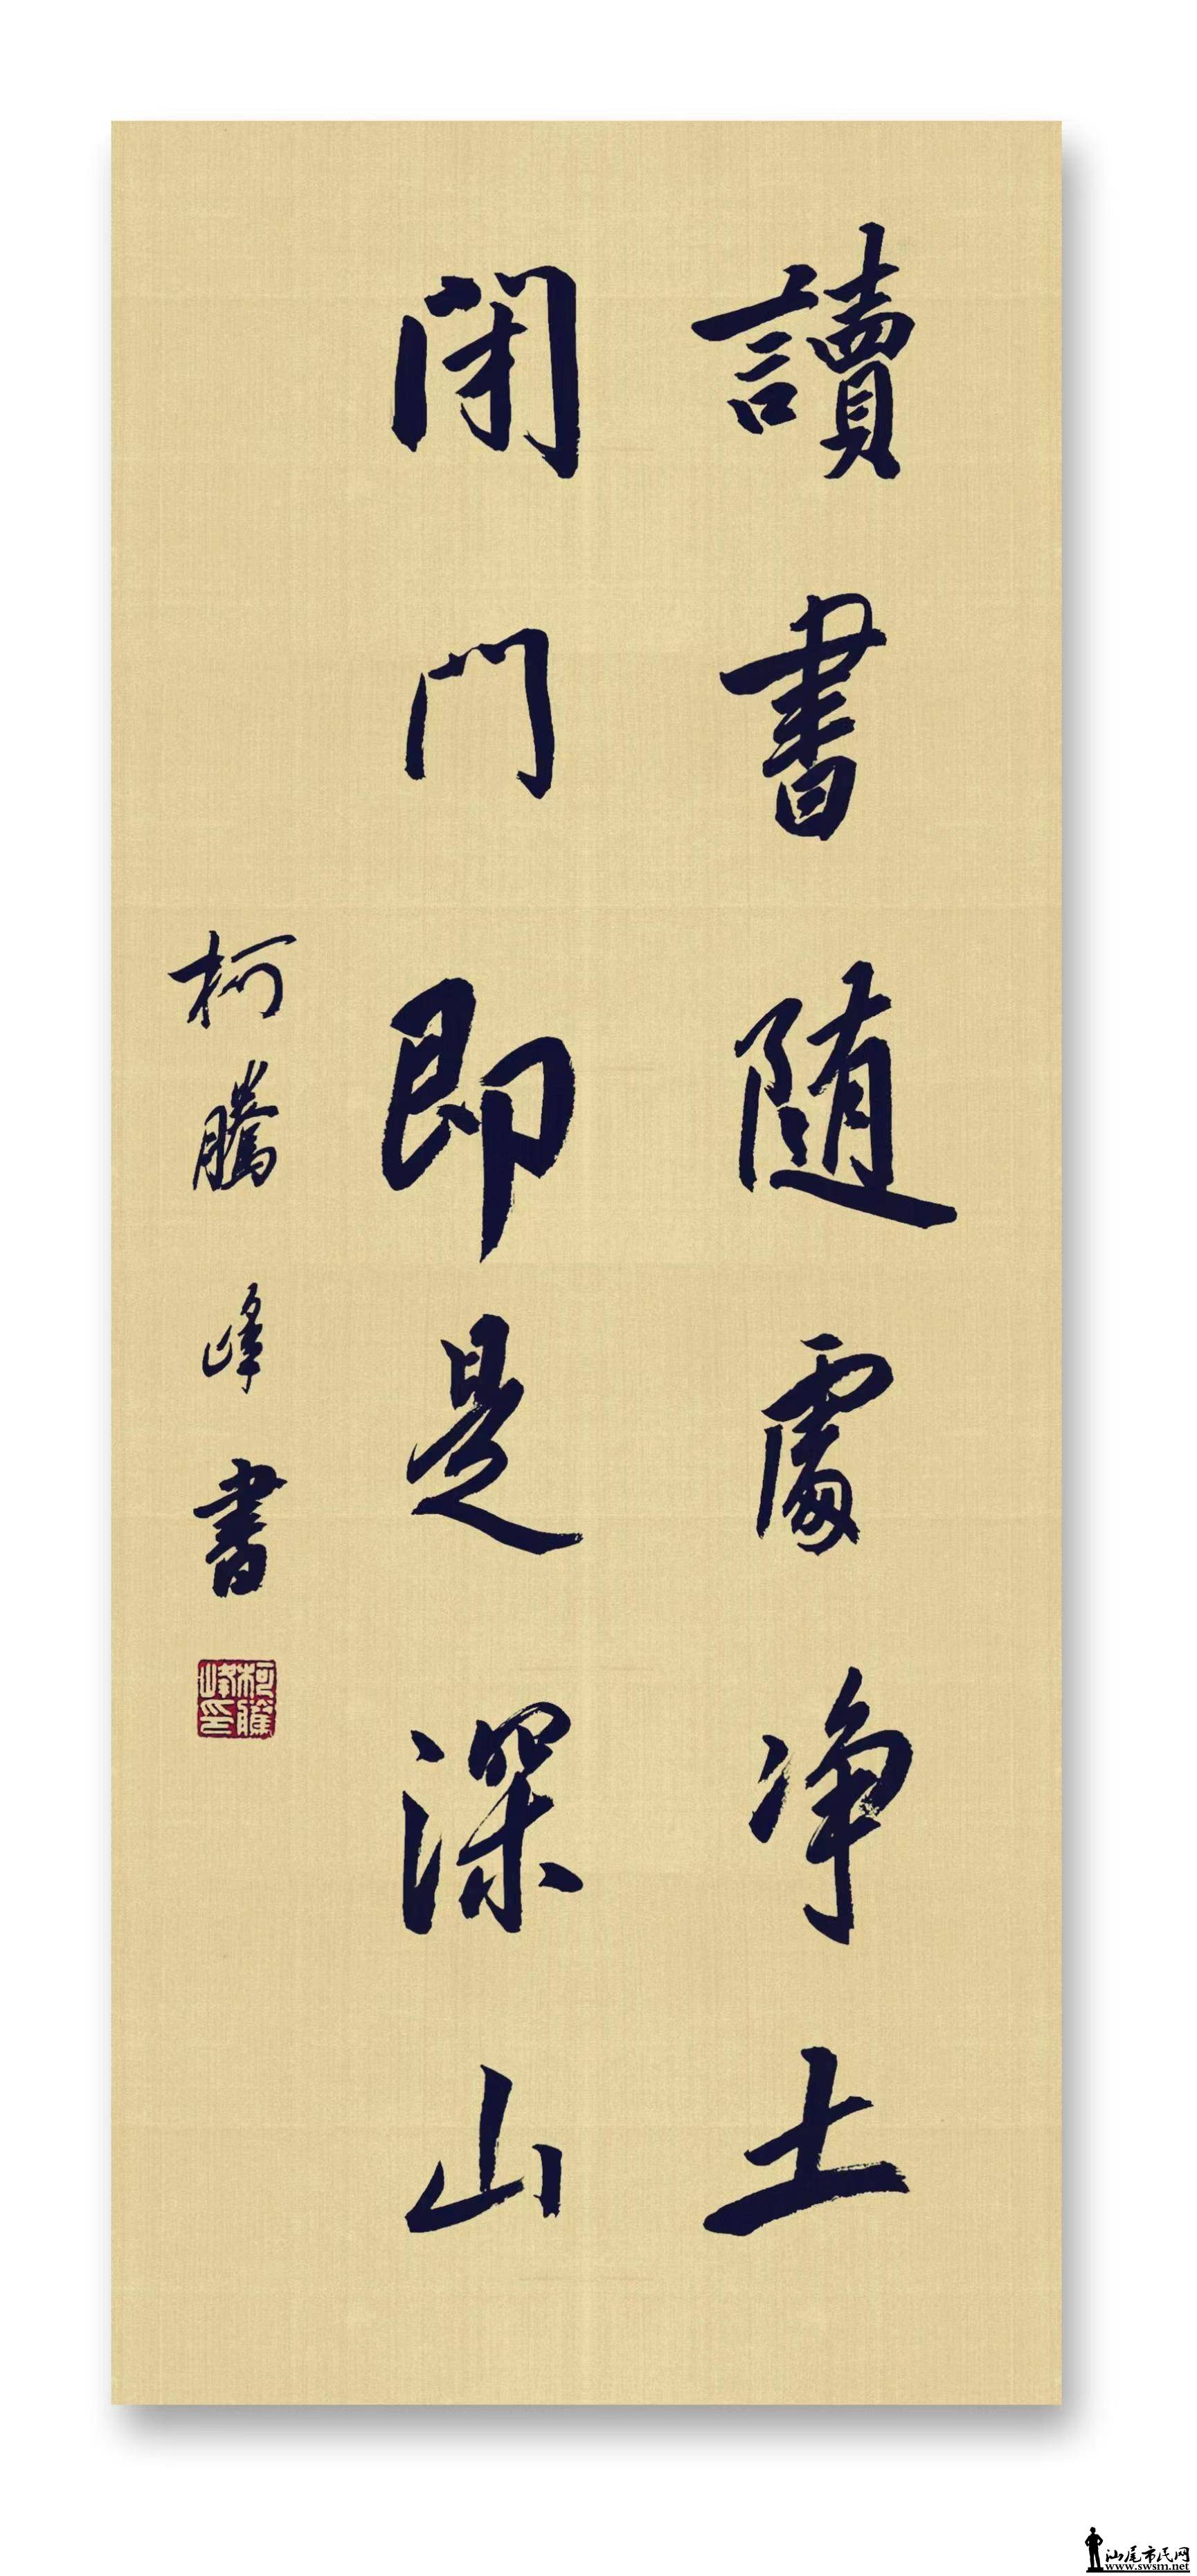 讀書随處净土
闭门即是深山
柯騰峰書
柯騰峰印
汕尾市民网
www.swsm.net